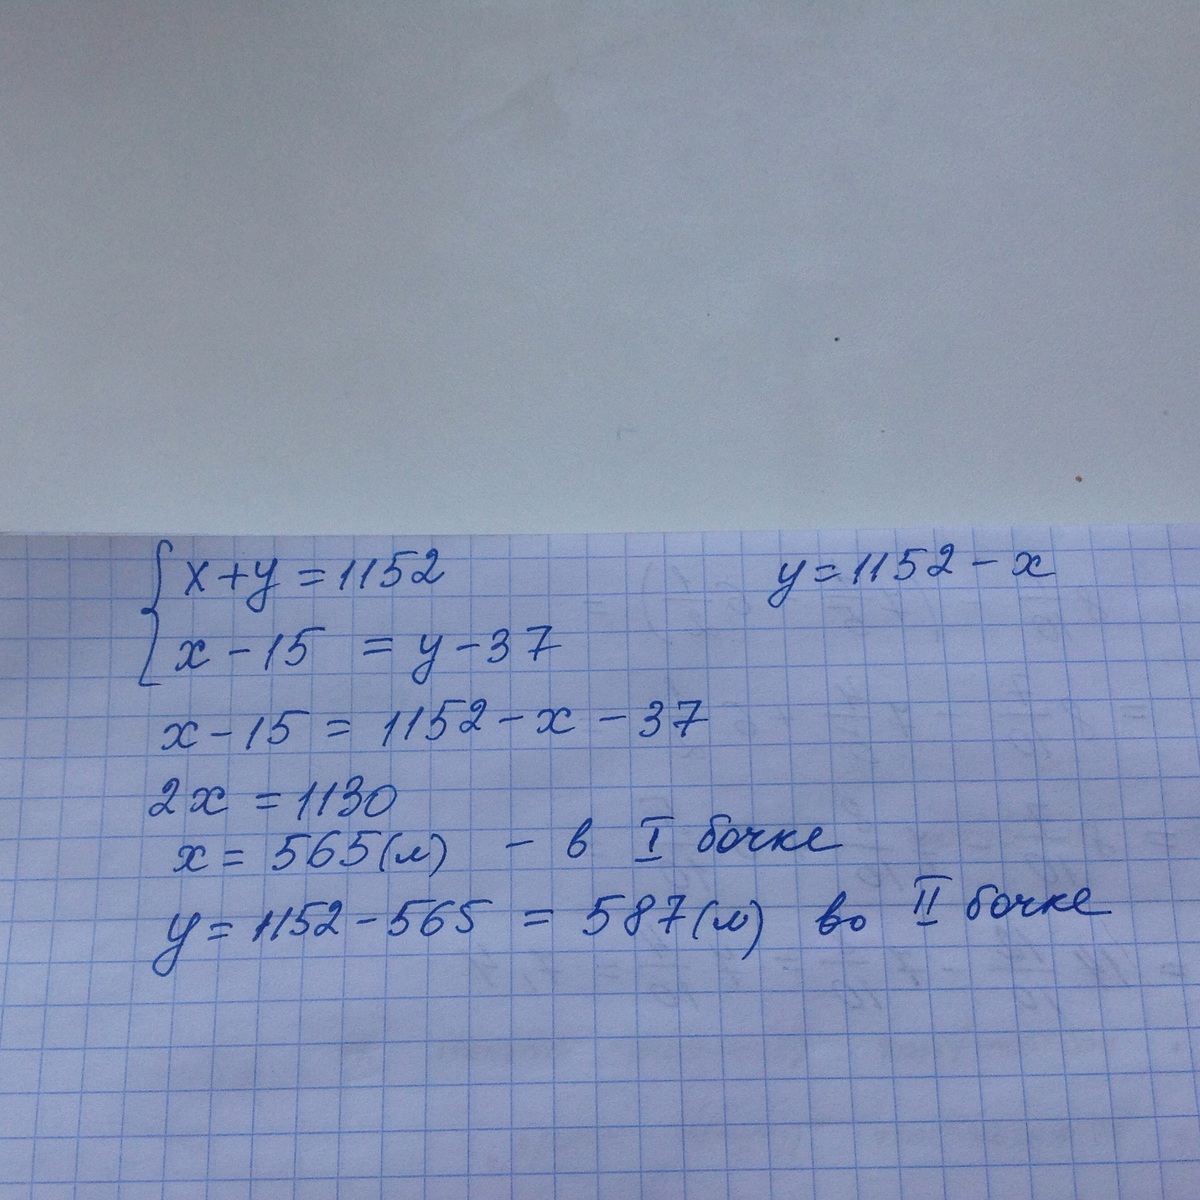 x+y=1152 y=1152-x
x-15 = y-37
x-15 = 1152-x-37
2x = 1130
x = 565(л) - в I бочке
y=1152-565 = 587(л) во II бочке